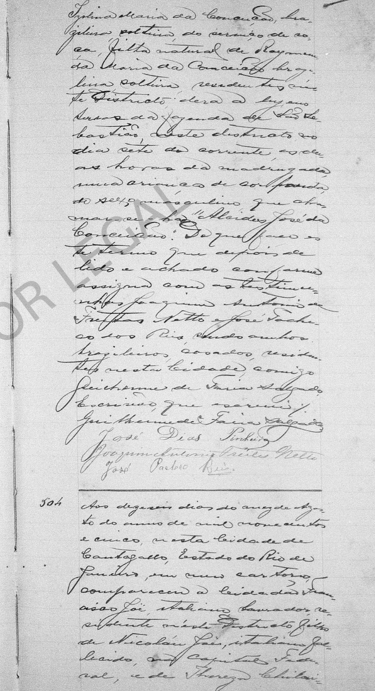 Maria da Conceição, bra
zileira solteira, do serviço de ca
sa, filha natural de Raymun
da Maria da Conceição braz
leira solteira, residentes nes
te Districto dera a luz em
terras da fazenda de São Se
bastião neste districto no
dia sete do corrente as du
as horas da madrugada
uma criança de cor parda
do sexo masculino que cha
mar José da
Conceição. De que faço es
te termo que depois de
lido e achado conforme
assigna com as testemu
nhas Joaquim Antonio de
Freitas Netto e José Pache
co dos Reis sendo ambos
brazileiros, casados, residen
tes nesta Cidade, comigo
Guilherme de Faria Salgado
Escrivão que escrevi
Guilherme de Faria Salgado
José Dias Pinheiro
Joaquim Antonio Freitas Netto
José Pacheco Reis
504
Aos dezeseis dias do mez de Agos
to do anno de mil novecentos
e cinco, nesta Cidade de
Cantagallo, Estado do Rio de
Janeiro, em meu cartorio
compareceu o cidadão
italiano lavrador re
sidente neste Districto filho
de Nicoláu italiano fal
lecido, na Capital Fede
ral, e de Thereza
OR LEGAL